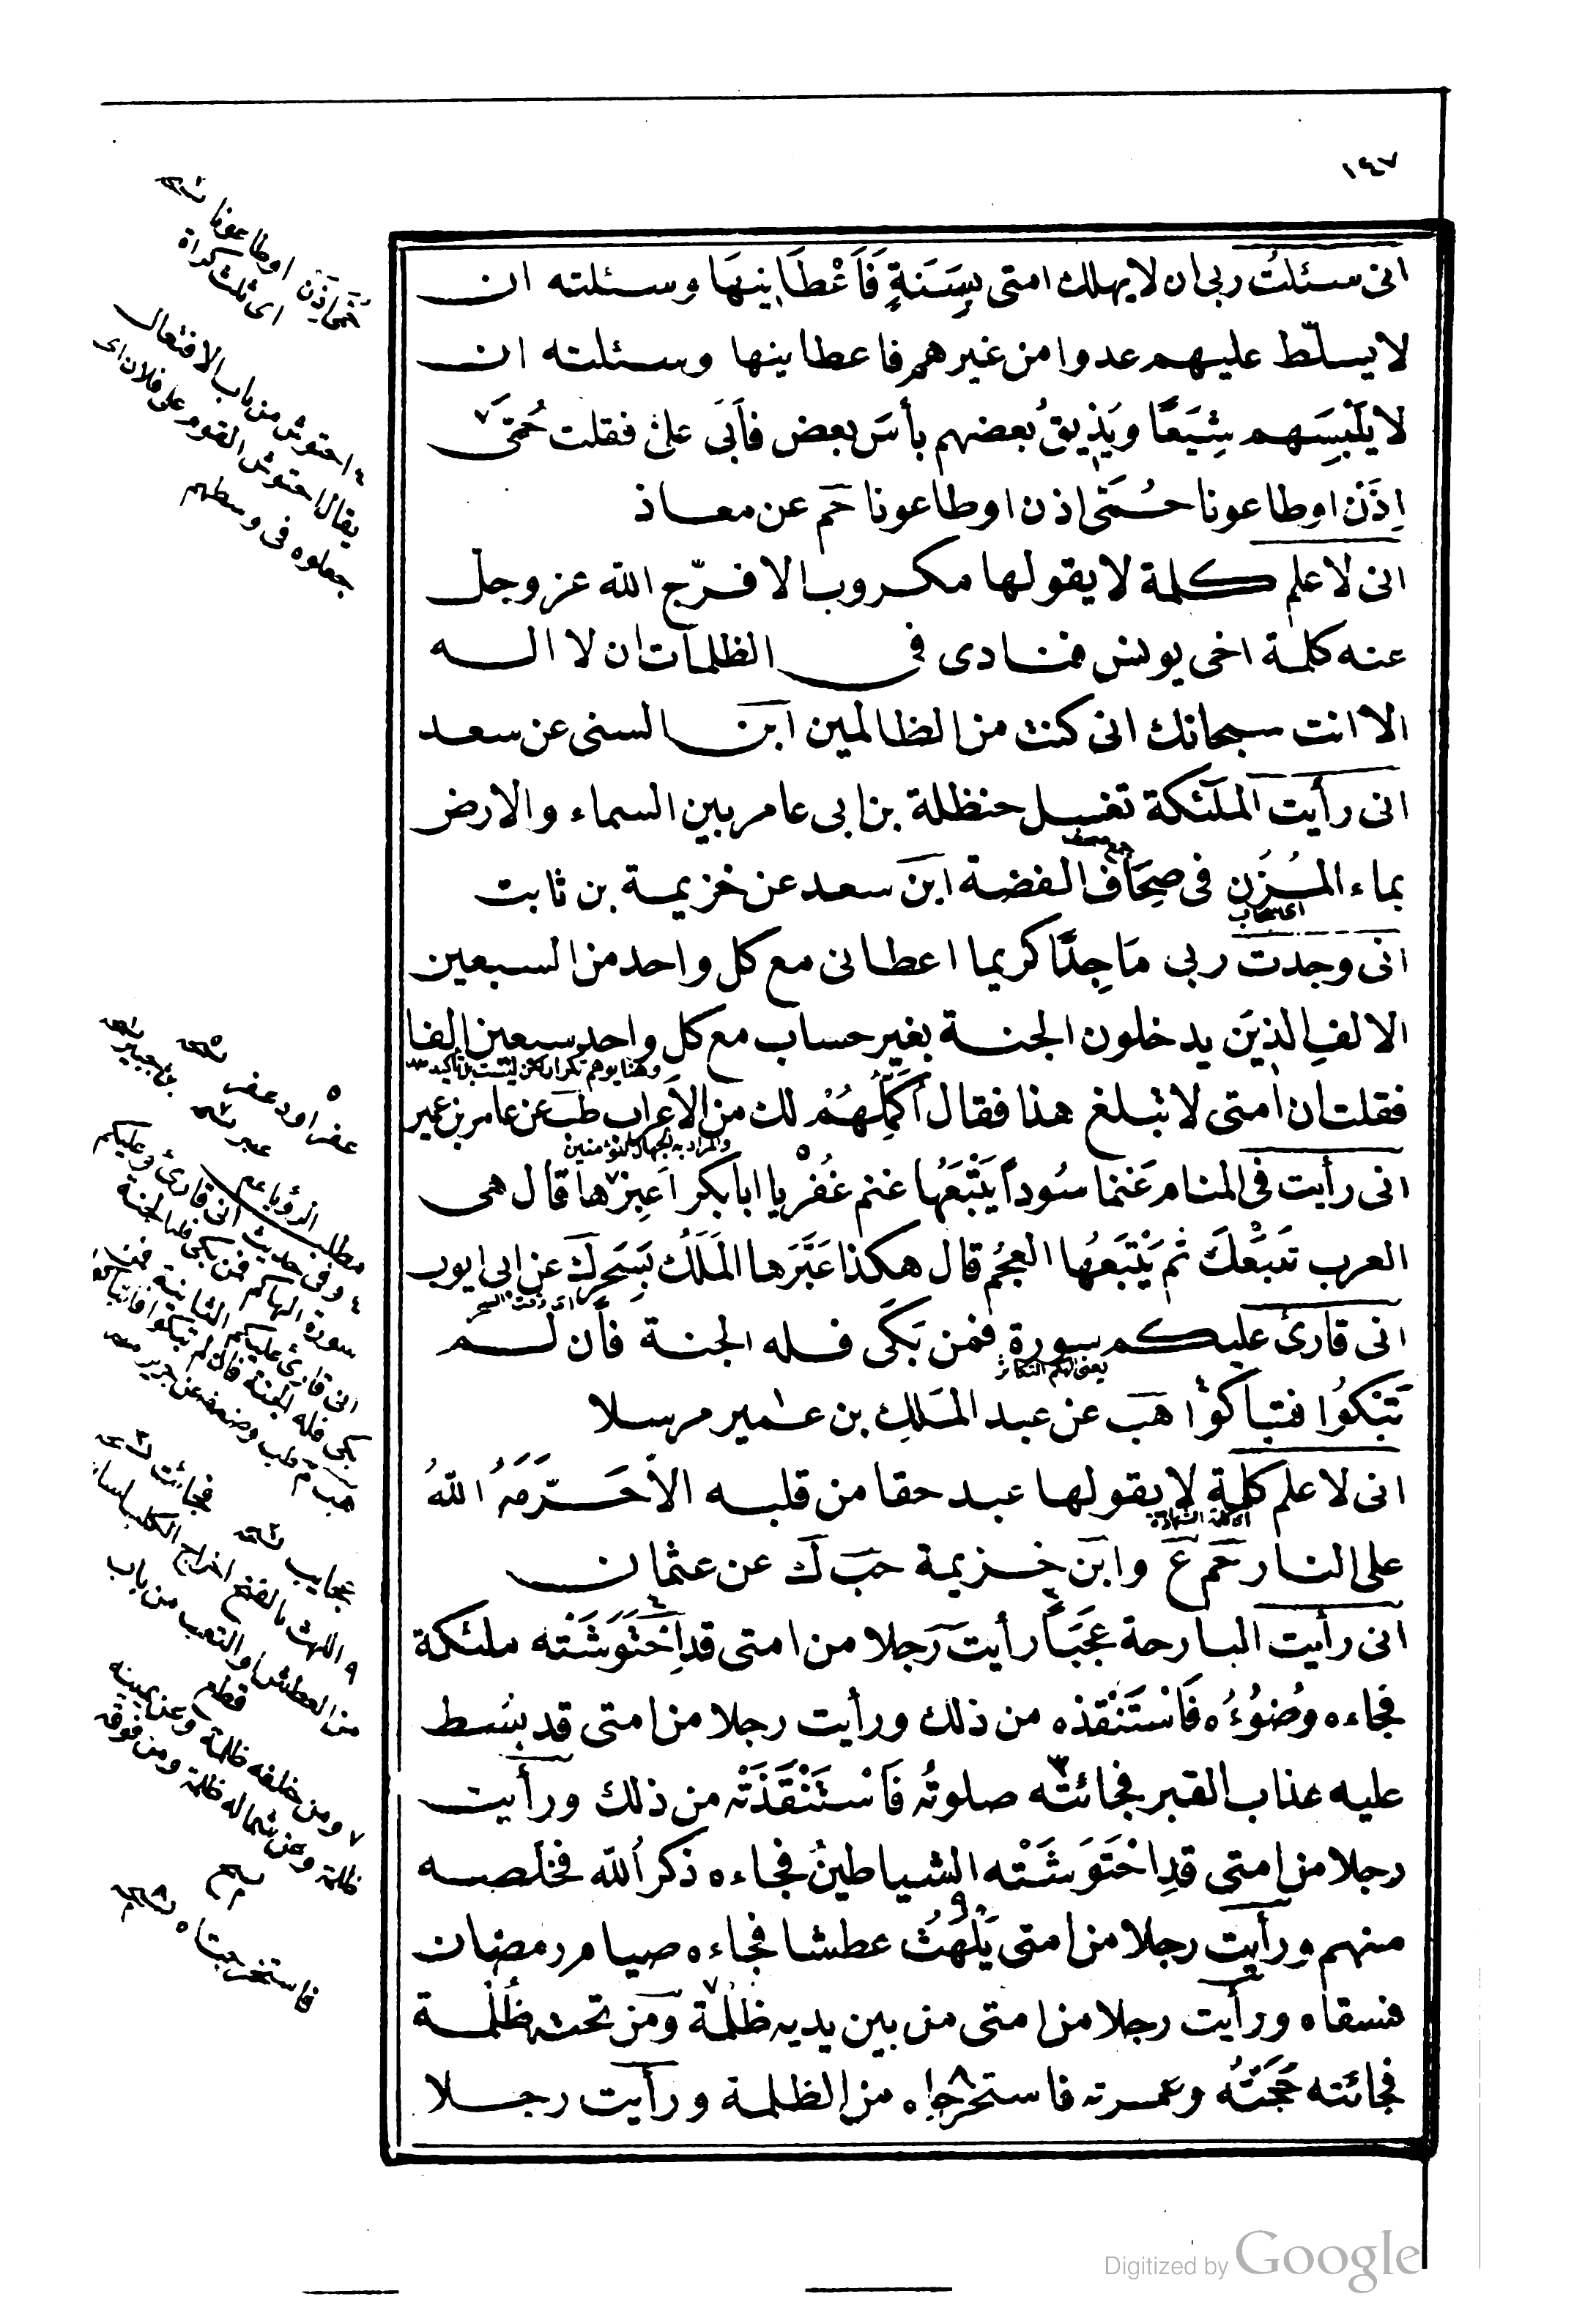 ١٤٧
انى سئلتُ ربى ان لا يهلك امتى بِسَنَةٍ فَاَعْطَانِيهَا وسئلته ان
لا يسلّط عليهم عدوا من غيرهم فاعطانيها وسئلته ان
لا يَلْبِسَهم شِيَعًا ويُذِيقُ بعضهم بأسَ بعض فاَبَى علىّ فقلت حُمَّى
اِذَنْ اوطاعونا حُمَّى اذن اوطاعونا حم عن معاذ
انى لاعلم كلمة لا يقولها مكروب الا فرّج الله عز وجل
عنه كلمة اخى يونس فنادى فى الظلمات ان لا اله
الا انت سبحانك انى كنت من الظالمين ابن السنى عن سعد
انى رأيت الملٰئكة تغسل حنظلة بن ابى عامر بين السماء والارض
بماء المُزُنِ فى صِحَافِ الفضة ابن سعد عن خزيمة بن ثابت
اى سحاب
انى وجدت ربى مَاجِدًا كريما اعطانى مع كل واحد من السبعين
الالفِ الذِينَ يدخلون الجنة بغير حساب مع كل واحد سبعين الفا
فقلت ان امتى لا تبلغ هذا فقال اُكَمِّلُهُمْ لك من الاَعراب طب عن عامر بن عمير
انى رأيت فى المنام غَنَما سُوداً يَتْبَعُها غنم عُفْر يا ابابكر اَعبِرْها فقال هى
العرب تَتبَعُكَ ثم يَتْبَعُها العجُم قال هكذا عَبَّرَها المَلَكُ بِسَحَرٍ ك عن ابى ايوب
اى وقت السحر
انى قارئ عليكم سورة فمن بَكَى فله الجنة فأن لم
يعنى الهيكم التكاثر
تَبْكُوا فتباكوْا هب عن عبد المَلكِ بن عمير مرسلا
انى لاعلم كلمة لا يقولها عبد حقا من قلبه الاَّ حَرَّمَهُ اللهُ
اى كلمة الشهادة
على النار حم ع وابن خزيمة حب ك عن عثمان
انى رأيت البارحة عَجَبًا رأيت رجلا من امتى قد اِحْتَوَشَتْه ملئكة
فجاءه وُضوُءُه فَاسْتَنْقذه من ذلك ورأيت رجلا من امتى قد بُسط
عليه عذاب القبر فجائتْه صلوتُه فَاسْتَنْقَذَتْه من ذلك ورأيت
رجلا من امتى قدِ احْتَوَشَتْه الشياطينُ فجاءه ذكر الله فخلّصه
منهم ورأيت رجلا من امتى يَلْهَثُ عطشا فجاءه صيام رمضان
فسقاه ورأيت رجلا من امتى من بين يديه ظُلْمة ومن تحته ظُلْمة
فجائته حَجّتُه وعمرته فاستخرجاه من الظلمة ورأيت رجلا
اى ثلث كراة
٤ احتوش من باب الافتعال
يقال احتوش القوم على فلان اى
جعلوه فى وسطهم
مطلب الرؤيا
٤ وفى حديث انى قارئ عليكم
سورة الهاكم فمن بكى فله الجنة
انى قارئ عليكم الثانية فمن
فجائت
عجايب
٩ اللهث بالفتح اخراج الكلب لسانه
من العطش والتعب من باب
قطع
٧ ومن خلفه ظلمة وعن يمينه
ظلمة وعن شماله ظلمة ومن فوقه
Digitized by Google